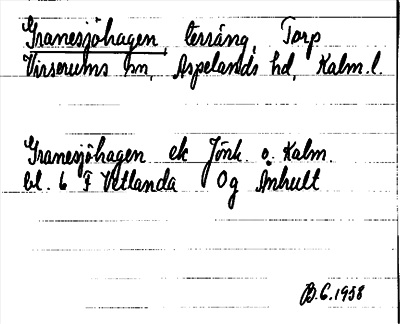 Granesjöhagen, terräng, Torp
Virserums sn, Aspelands hd, Kalm. l.
Granesjöhagen ek Jönk. o. Kalm.
bl. 6 F Vetlanda Og Änhult
B.G. 1958